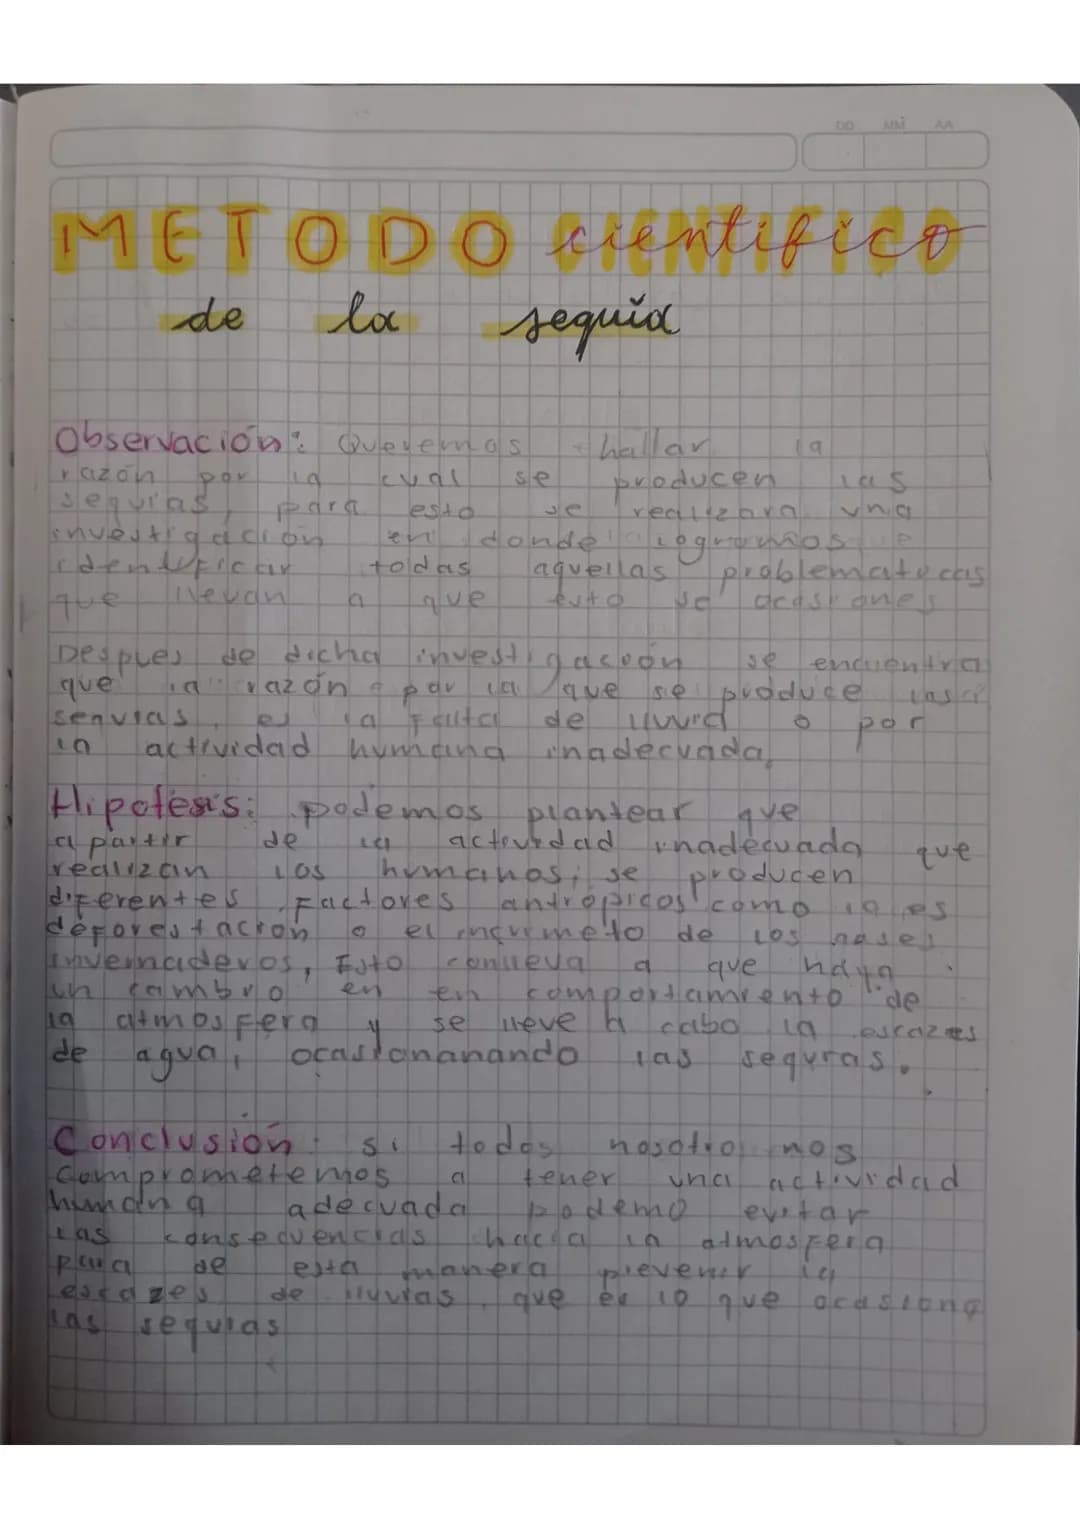 DD MM AA
METODO cientifico
de la sequía
Observación: Queremos hallar la
razón por la cual se producen las
sequias, para esto se realizara una
investigación en donde logramos
identificar todas aquellas problematicas
que llevan a que esto se ocasiones
Despues de dicha investigación se encuentra
que la razón por la que se produce las
sequias, es la falta de lluvia o por
la actividad humana inadecuada,
Hipotesis: podemos plantear que
a partir de la actividad inadecuada que
realizan los humanos, se producen
diferentes factores antropicos como la es
deforestacion o el incrimeto de los gases
invernaderos, Esto conlleva a que haya
un cambio en en comportamiento de
la atmosfera y se lleve a cabo la escazes
de agua, ocasionanando las sequias.
Conclusión: si todos nosotro nos
comprometemos a tener una actividad
humana adecuada podemo evitar
las consecuencias hacia la atmosfera
para de esta manera prevenir la
escazes de lluvias, que es lo que ocasiona
las sequias